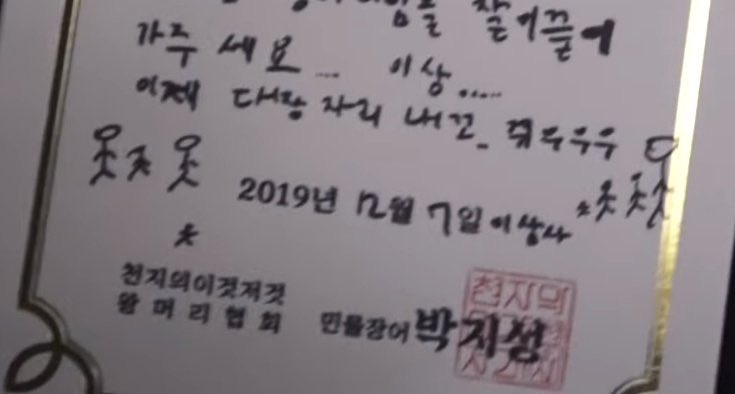 잘 이끌어
가주세요... 이상.....
이제 대장자리 내꼬_ 쮜우우우
2019년 12월 7일 이상사
천지의이것저것
왕머리협회 민물장어 박지성
천지의